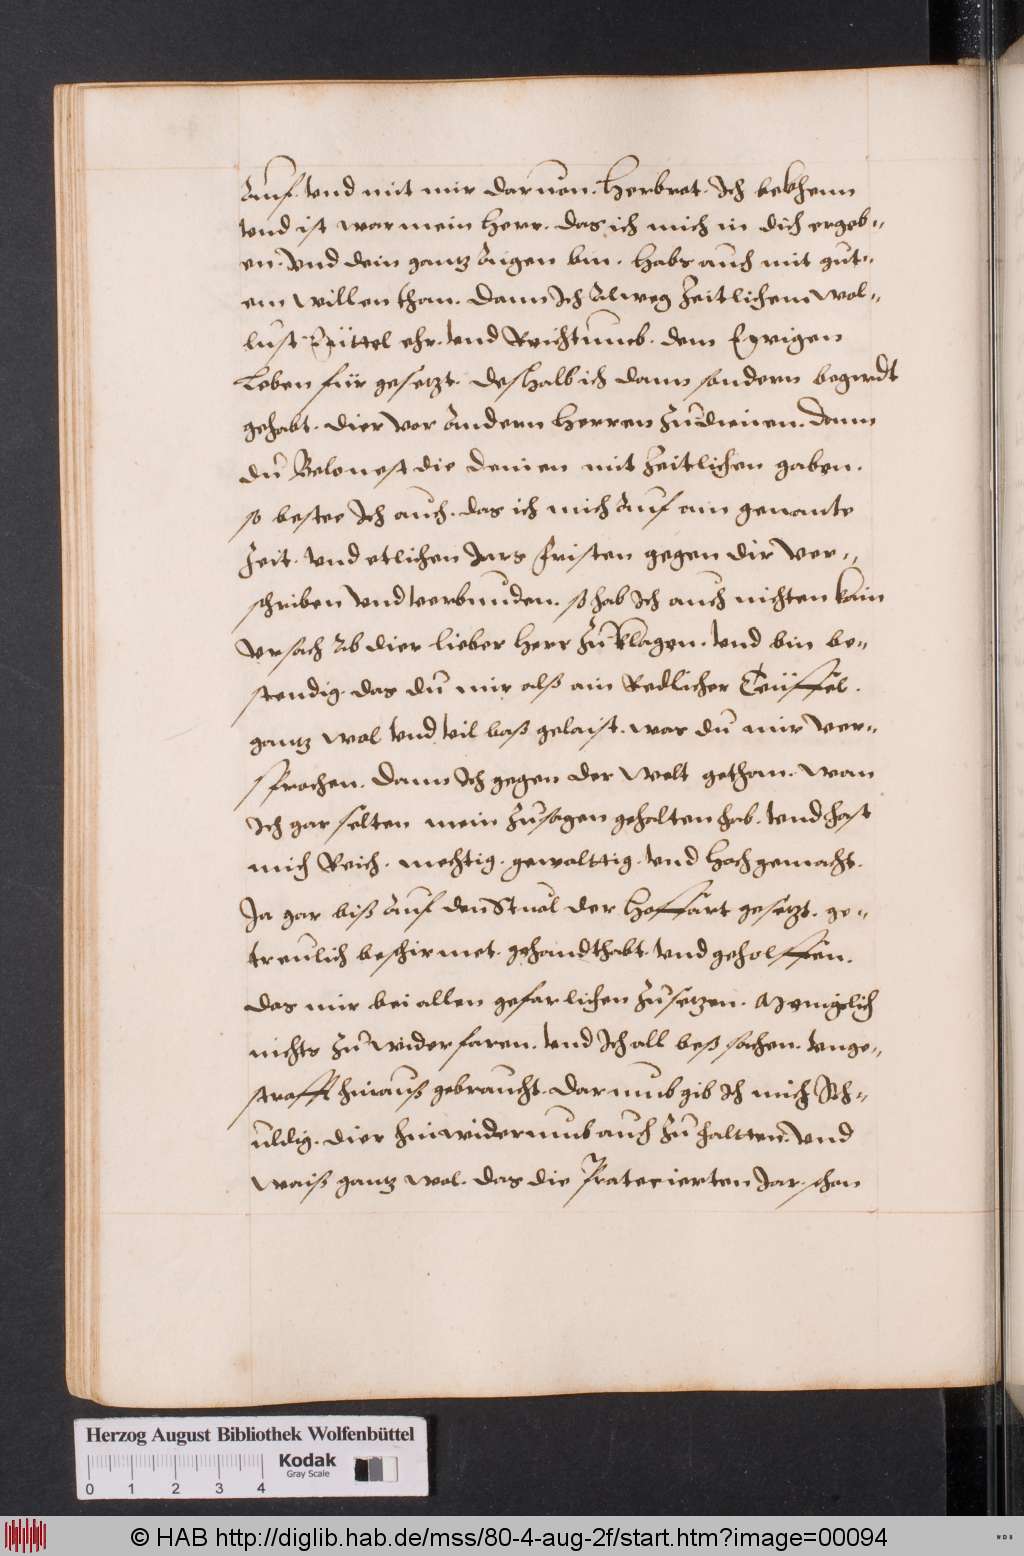 Auf. vnd mit mir daruon. Herbrot. Ich bekhenn
vnd ist war mein Herr. das ich mich in dich ergeb-
en. vnd dein gantz Aigen bin. habs auch mit gut-
em willen than. Dann Ich Alweg Zeitlichem wol-
lust Eüttel ehr. vnd Reichtumb. dem Ewigen
Leben für gesetzt. deshalb ich dann sondern begirdt
gehabt. dier vor Andern Herren Zu dienen. dann
du Belonest die deinen mit Zeitlichen gaben.
so bestee Ich auch. das ich mich Auf ain genante
Zeit. vnd etlichen Jars fristen gegen dir ver-
schriben vnd verbunden. so hab Ich auch nichten kain
vrsach Ab dier lieber Herr Zu klagen. vnd bin be-
stendig. das du mir alß ain Redlicher Teüffel.
gantz wol vnd vil baß gelaist. was du mir ver-
sprochen. dann Ich gegen der welt gethan. wan
Ich gar selten mein Zusagen gehalten hab. vnd hast
mich Reich. mechtig. gewalttig. vnd hoch gemacht.
Ja gar biß Auf den Stuol der Hoffart gesetzt. ge-
treulich beschirmet. gehandthabt. vnd geholffen.
das mir bei allen gefarlichen Zusetzen. Meniglich
nichts Zu widerfaren. vnd Ich all beß sachen. vnge-
strafft hinauß gebraucht. darumb gib Ich mich Sch-
uldig. dier hinwiderumb auch Zu haltten. vnd
waiß gantz wol. das die Pratecierten Jar. schon
Herzog August Bibliothek Wolfenbüttel
Kodak
Gray Scale
0 1 2 3 4
© HAB http://diglib.hab.de/mss/80-4-aug-2f/start.htm?image=00094